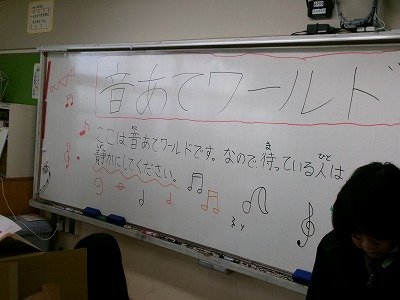 音あてワールド
ここは音あてワールドです。なので、待っている人は
静かにしてください。